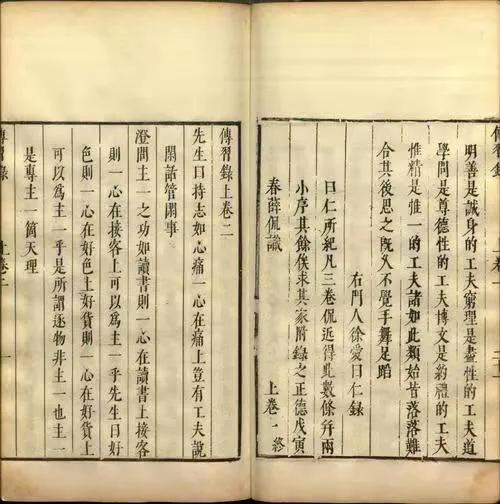 傳習錄
卷一
明善是誠身的工夫窮理是盡性的工夫道
學問是尊德性的工夫博文是約禮的工夫
惟精是惟一的工夫諸如此類始皆落落難
合其後思之既久不覺手舞足蹈
右門人徐愛曰仁錄
曰仁所紀凡三卷侃近得此數條并兩
小序其餘俟求其家附錄之正德戊寅
春薛侃識
上卷一終
傳習錄上卷二
先生曰持志如心痛一心在痛上豈有工夫說
閑話管閑事
澄問主一之功如讀書則一心在讀書上接客
則一心在接客上可以為主一乎先生曰好
色則一心在好色上好貨則一心在好貨上
可以為主一乎是所謂逐物非主一也主一
是專主一箇天理
傳習錄
上卷二
一